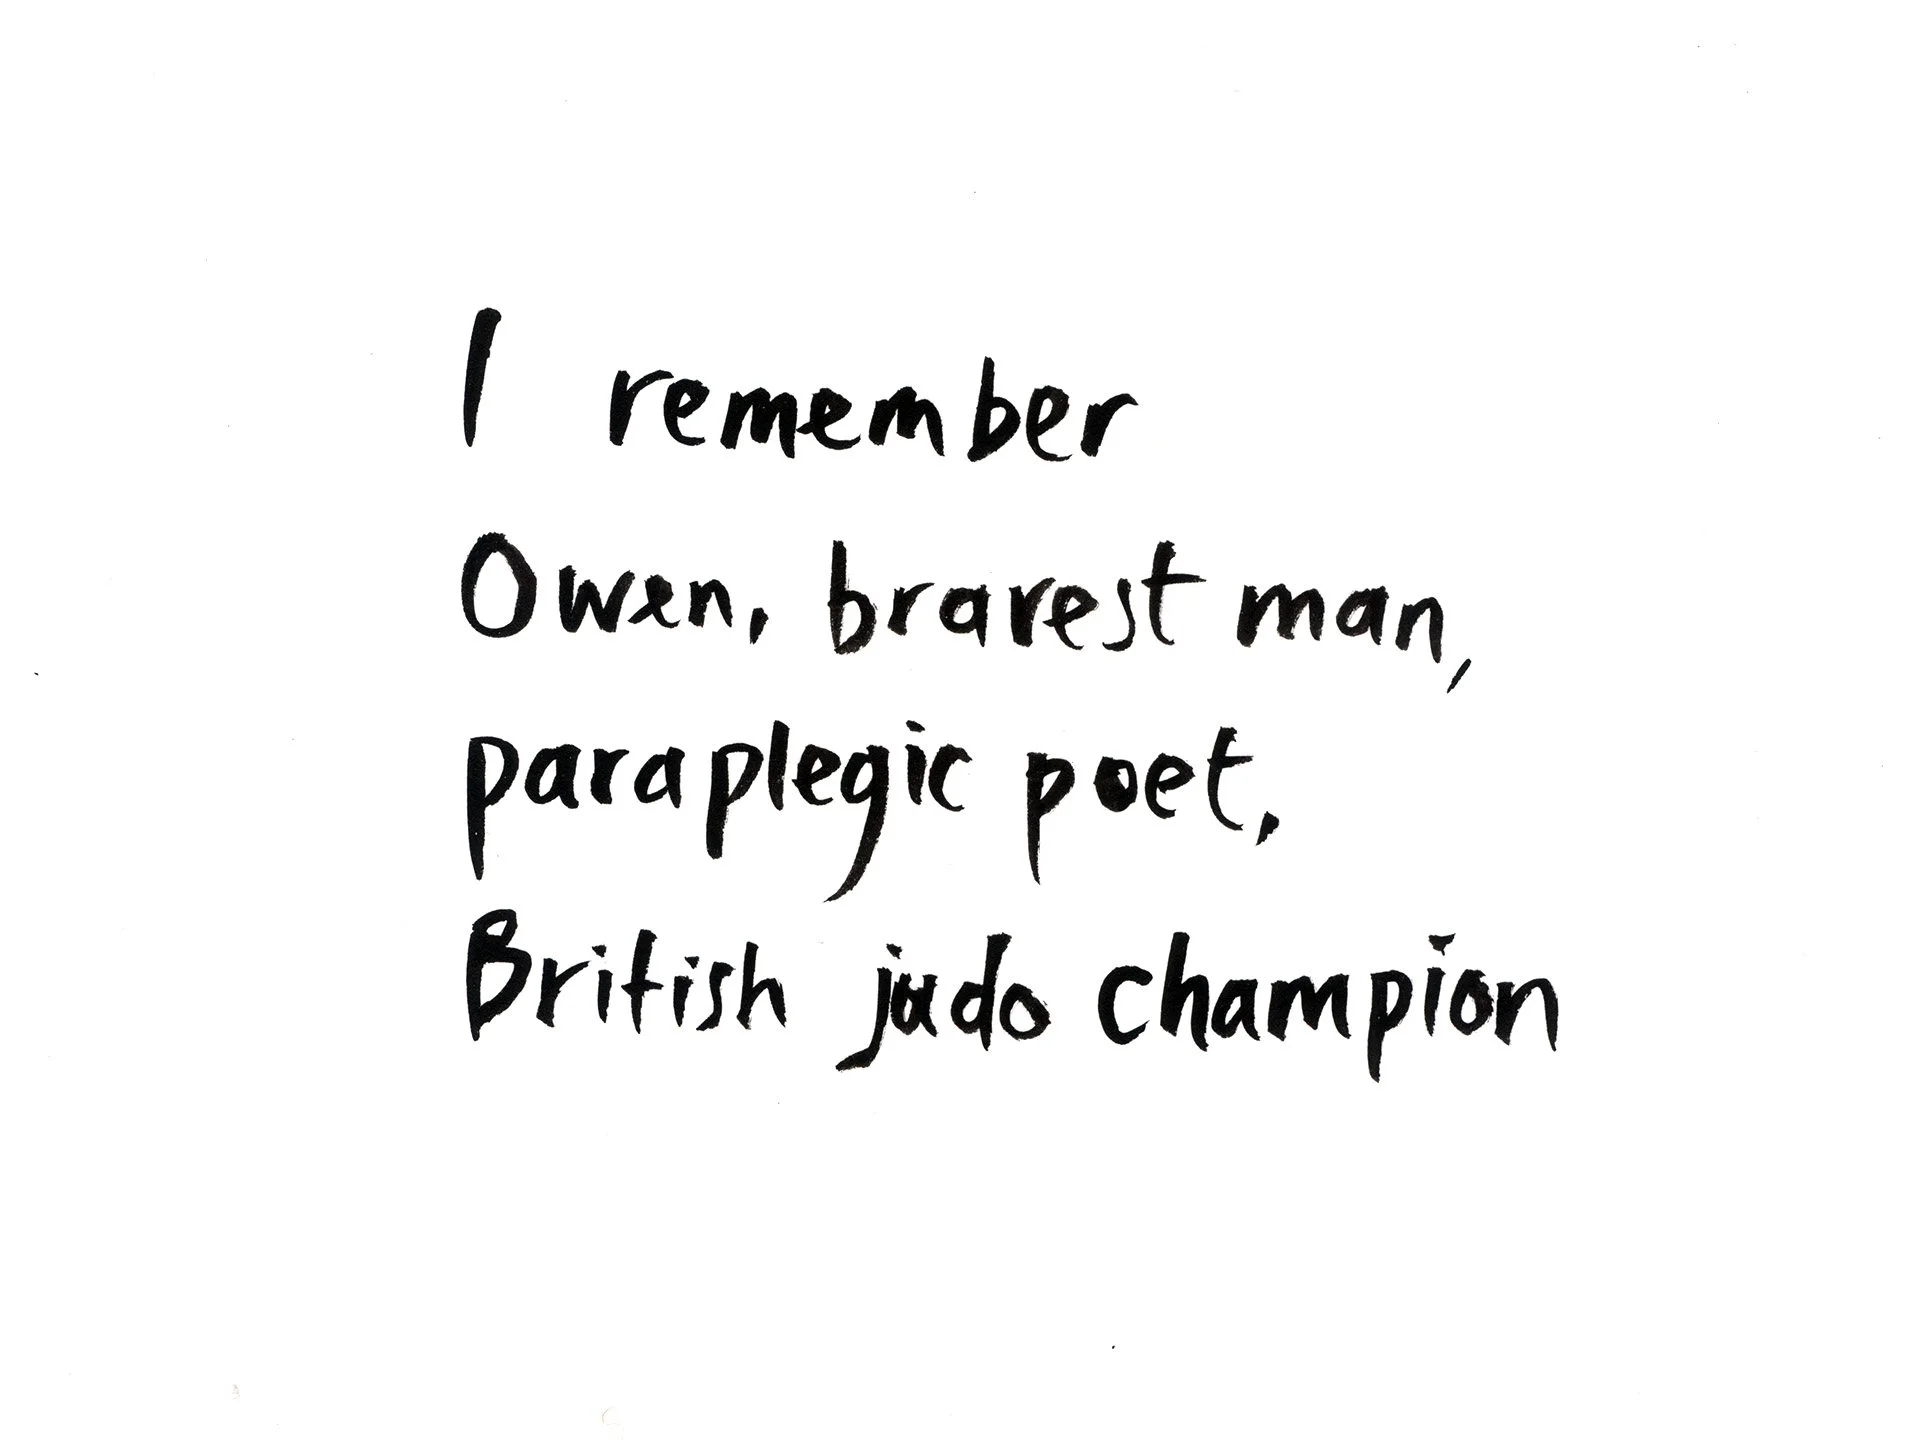 I remember
Owen, bravest man,
paraplegic poet,
British judo champion